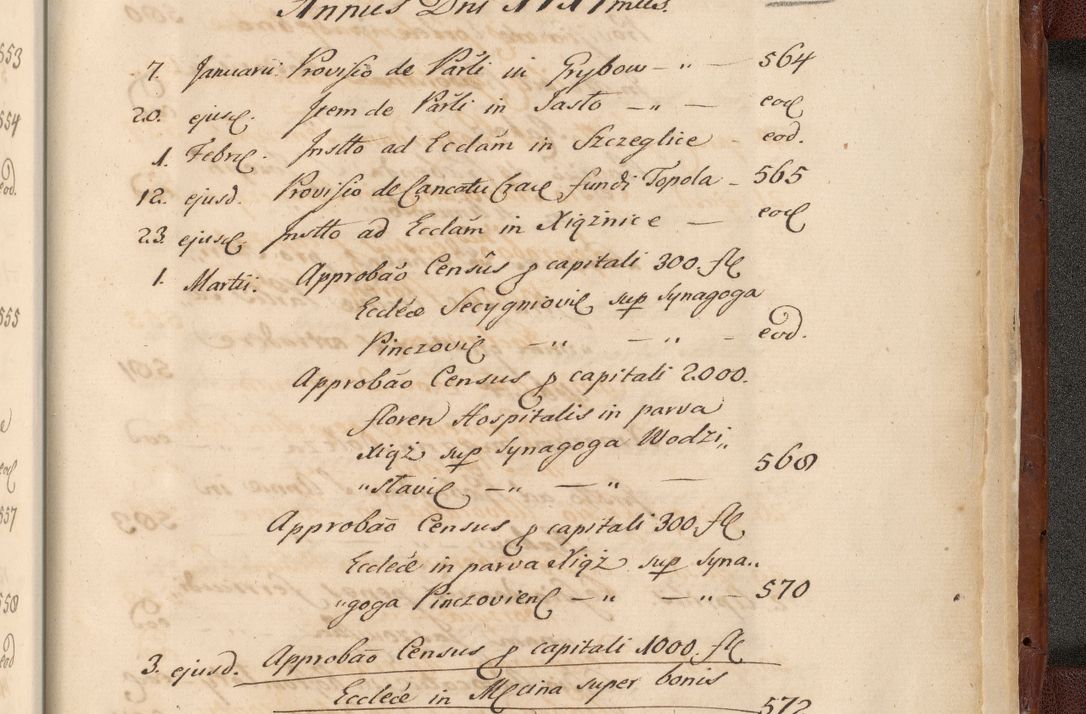 Annus Dni
553
554
eod.
555
557
558
eod.
7. Januarii. Provisio de Parli in Grybow — „ — 564
20. ejusd. Item de Parli in Jasło — „ — eod
1. Febrč. Instło ad Ecclãm in Szczeglice - eod.
12. ejusd. Provisio de Cancatu Crac fundi Topola - 565
23. ejusd. Instło ad Ecclãm in Xiążnice — eod
1. Martii. Approbão Censûs p capitali 300. fl
Eccleæ Secygniovi sup Synagoga
Pinczovi — „ — „ - eod.
Approbão Censûs p capitali 2000.
floren Hospitalis in parva
Xiąż sup Synagoga Wodzi„
„slavi — „ — „ — 568
Approbão Censûs p capitali 300. fl
Eccleæ in parva Xiąż sup Syna„
„goga Pinczovien — „ — „ - 570
3. ejusd. Approbão Censûs p capitali 1000. fl
Eccleæ in Mcina super bonis
572